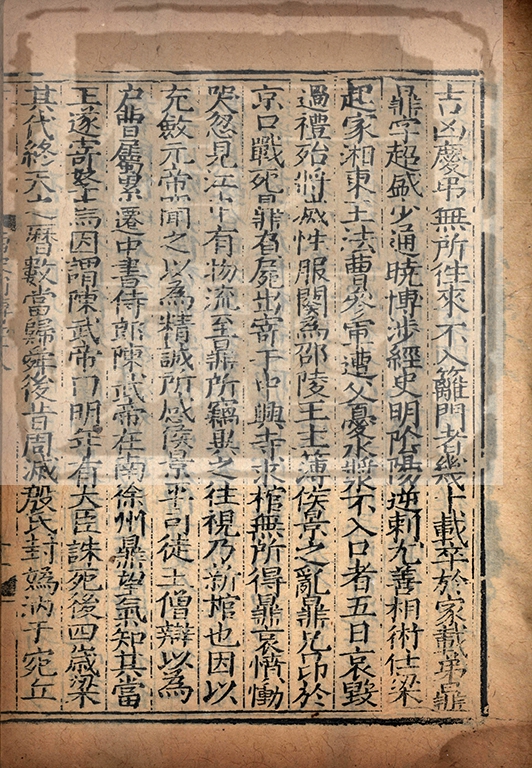 吉凶慶弔無所往來不入籬門者幾十載卒於家載弟鼎
鼎字超盛少通曉博涉經史明陰陽逆刺尤善相術仕梁
起家湘東王法曹參軍遭父憂水漿不入口者五日哀毀
過禮殆將滅性服闋爲邵陵王主薄侯景之亂鼎兄昂於
京口戰死鼎負屍出寄于中興寺求棺無所得鼎哀憤慟
哭忽見江中有物流至鼎所竊異之往視乃新棺也因以
充斂元帝聞之以爲精誠所感侯景平司徒王僧辯以爲
戶曹屬累遷中書侍郎陳武帝在南徐州鼎望氣知其當
王遂寄孥焉因謂陳武帝曰明年有大臣誅死後四歲梁
其代終天之曆數當歸舜後昔周滅殷氏封媯汭于宛丘